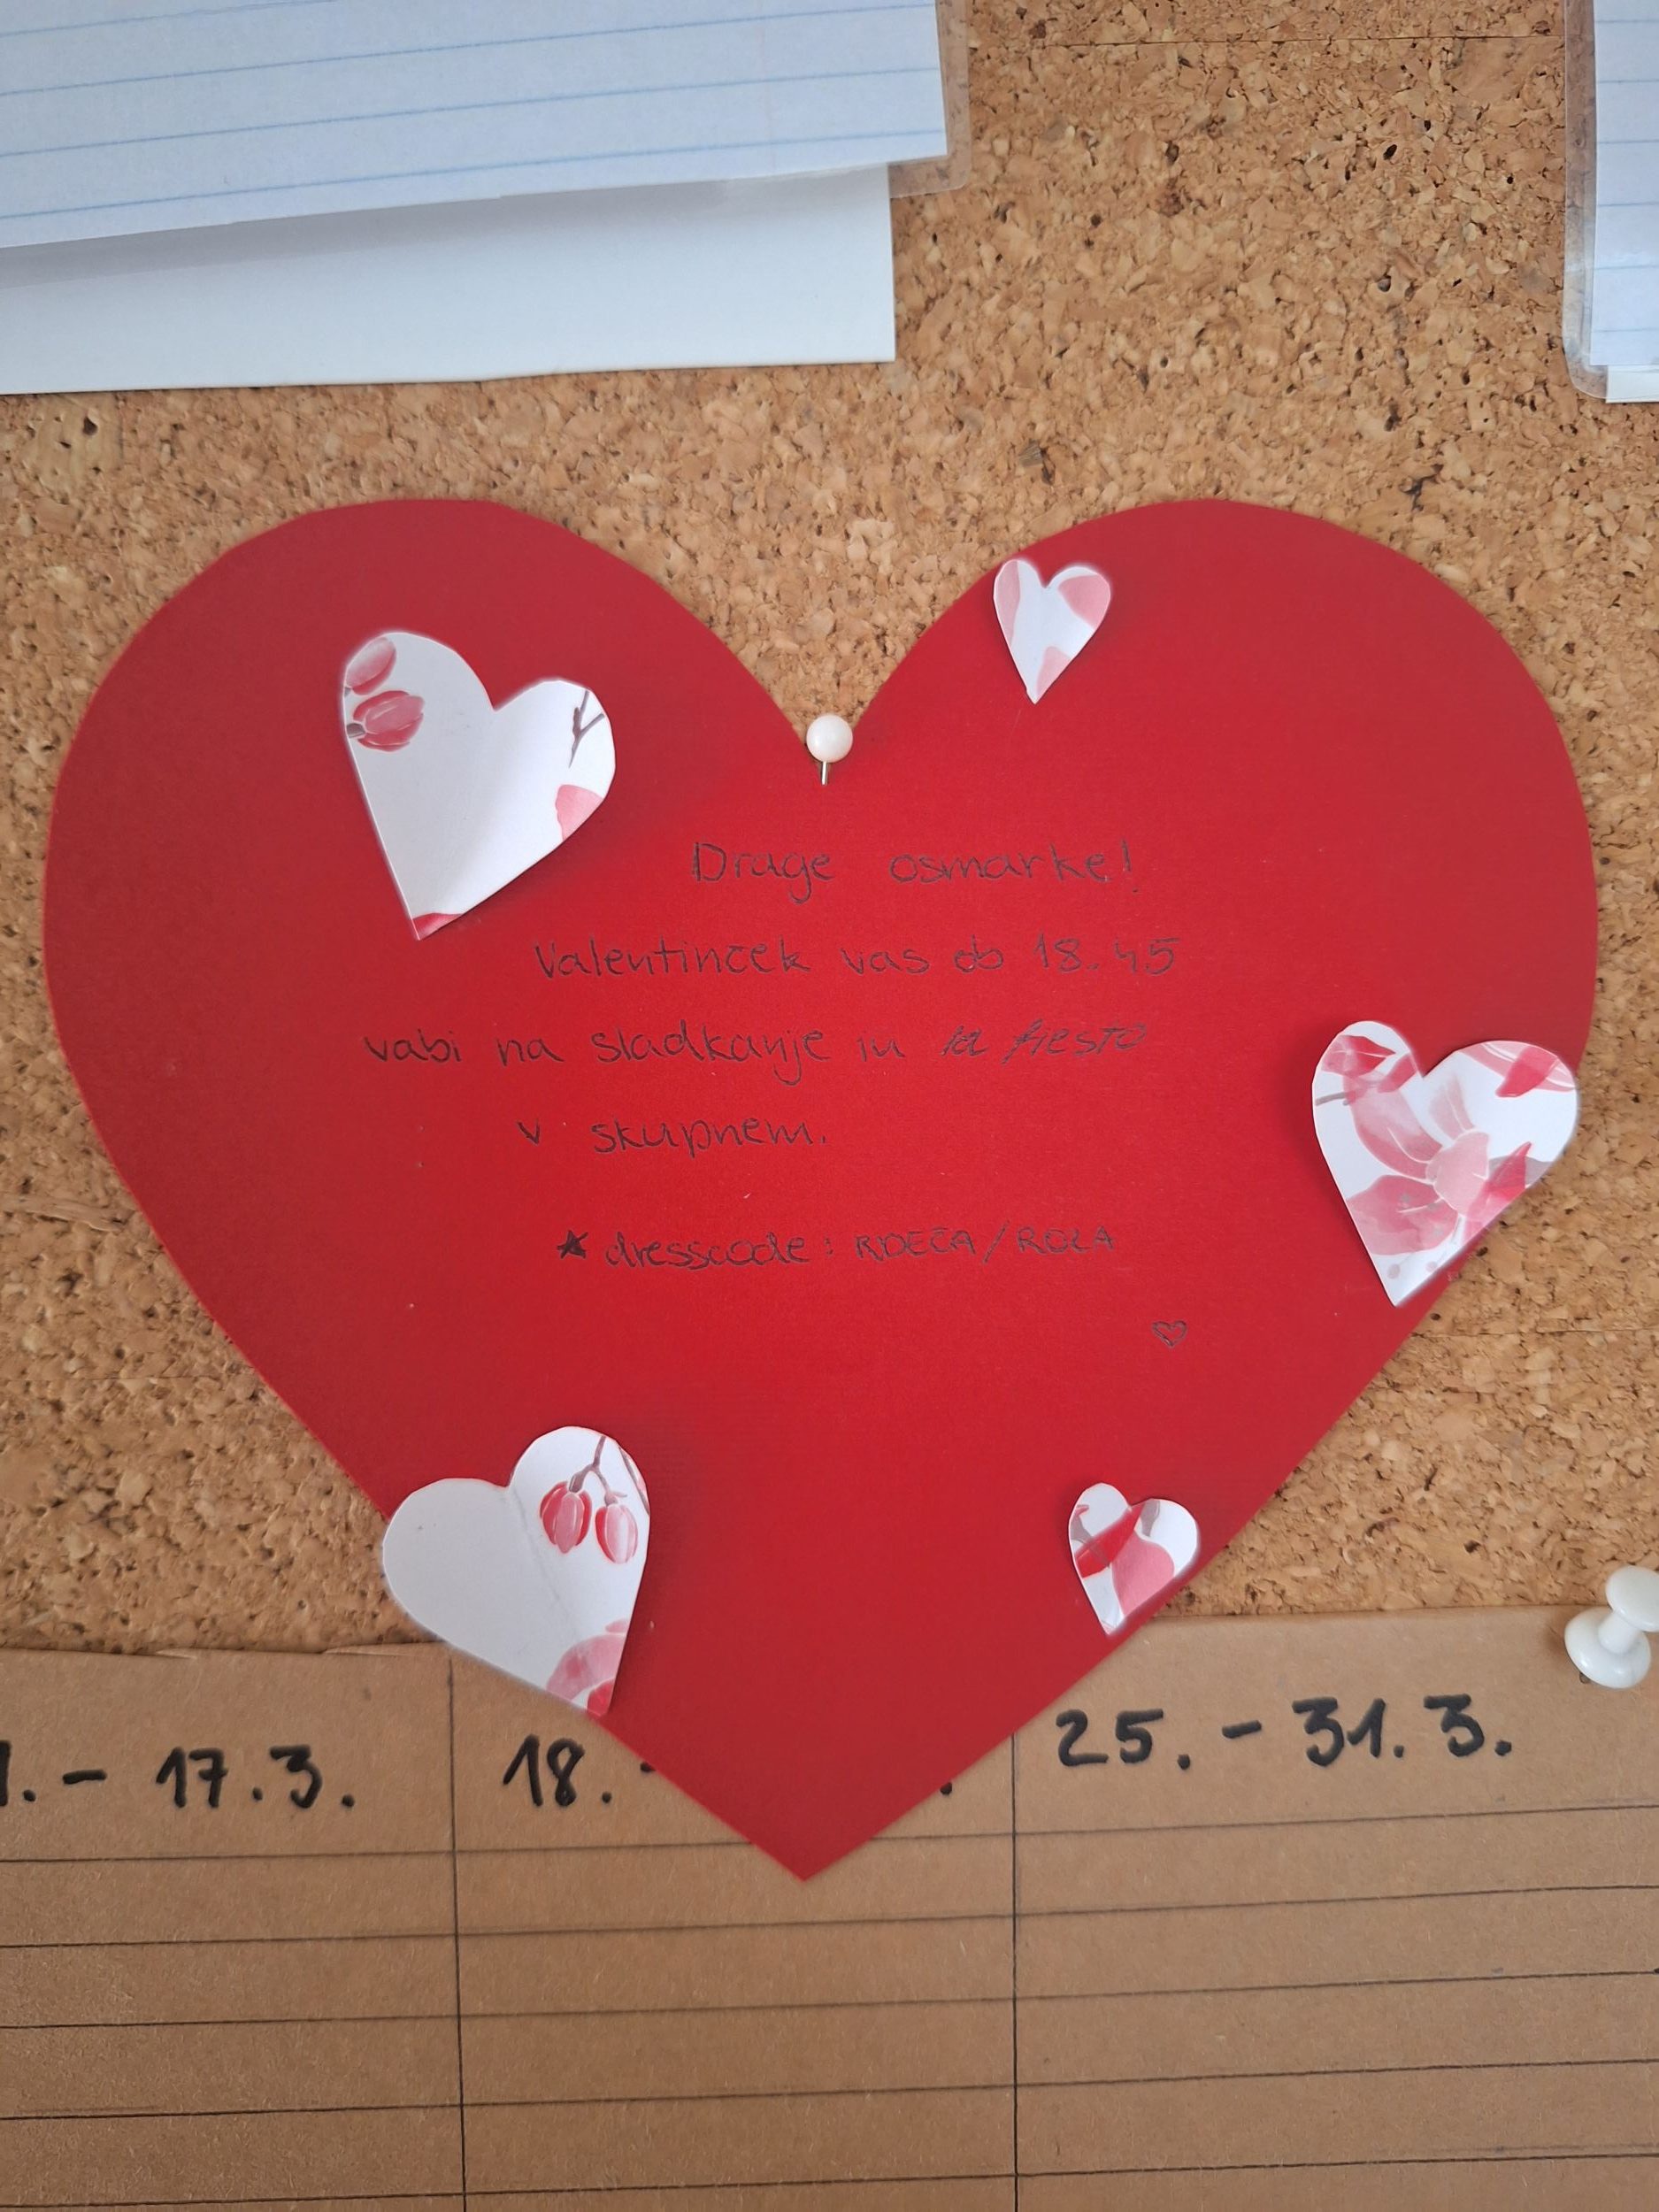 Drage osmarke!
Valentinček vas ob 18.45
vabi na sladkanje in la fiesto
v skupnem.
★ dresscode: RDEČA/ROZA
♡
1. - 17.3.
18. -
25. - 31.3.